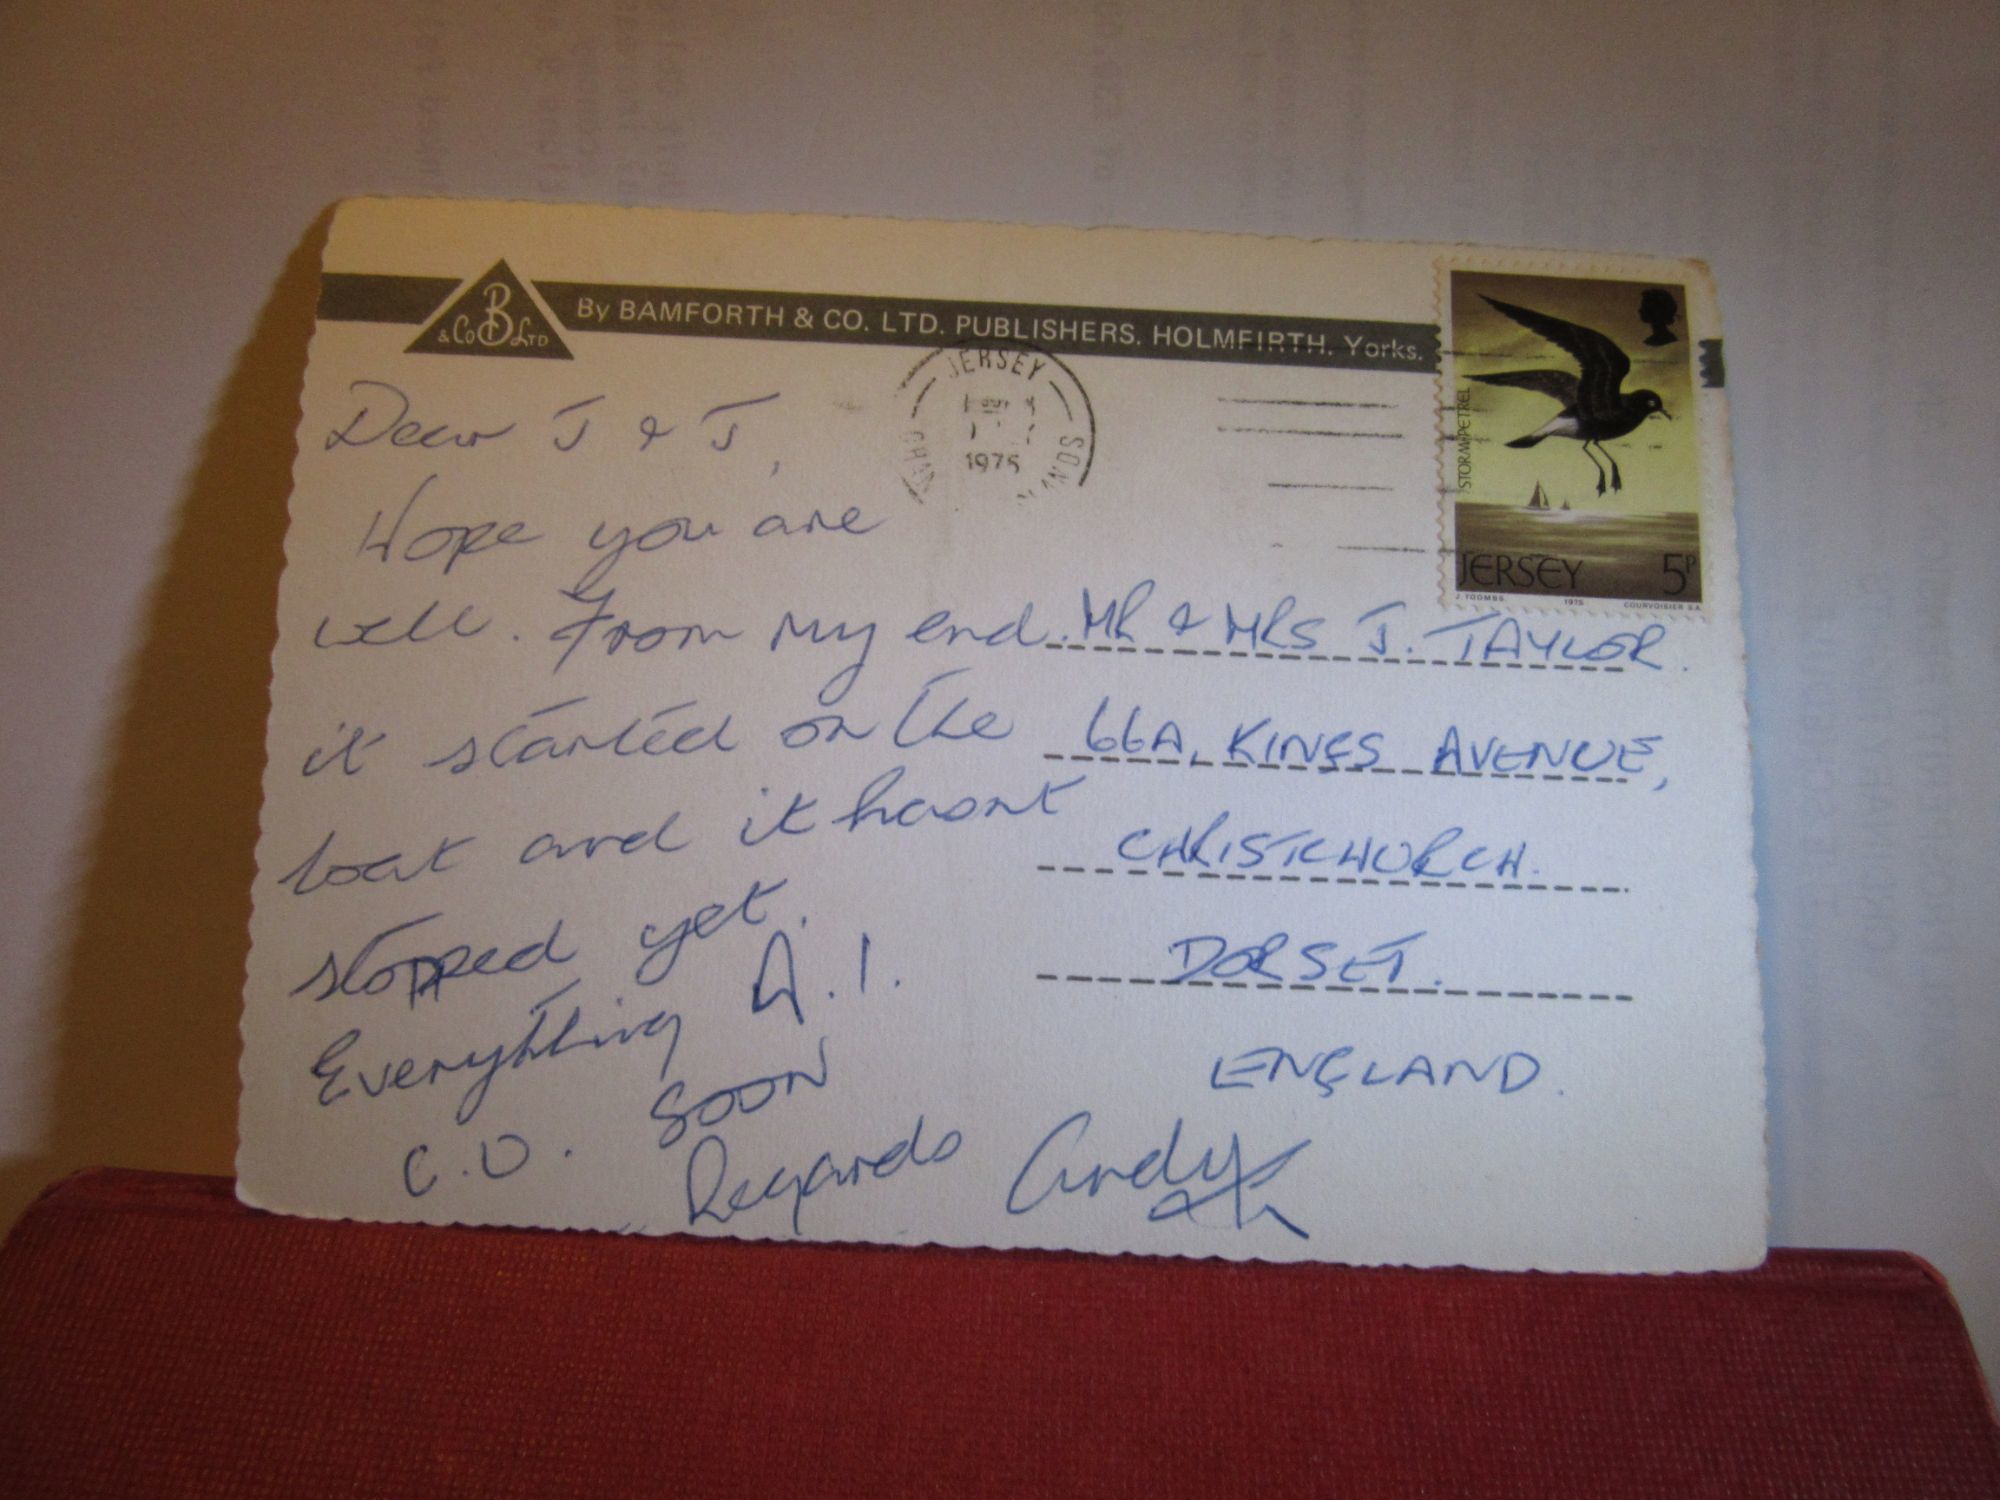 B
& Co Ltd
By BAMFORTH & CO. LTD. PUBLISHERS. HOLMFIRTH. Yorks.
JERSEY
1975
STORM PETREL
JERSEY 5P
J. TOOMBS 1975 COURVOISIER S.A.
Dear J & J,
Hope you are
well. From my end
it started on the
boat and it hasnt
stopped yet.
Everything A.1.
C.U. SOON
Regards Andy
MR & MRS J. TAYLOR.
66A, KINGS AVENUE,
CHRISTCHURCH.
DORSET.
ENGLAND.